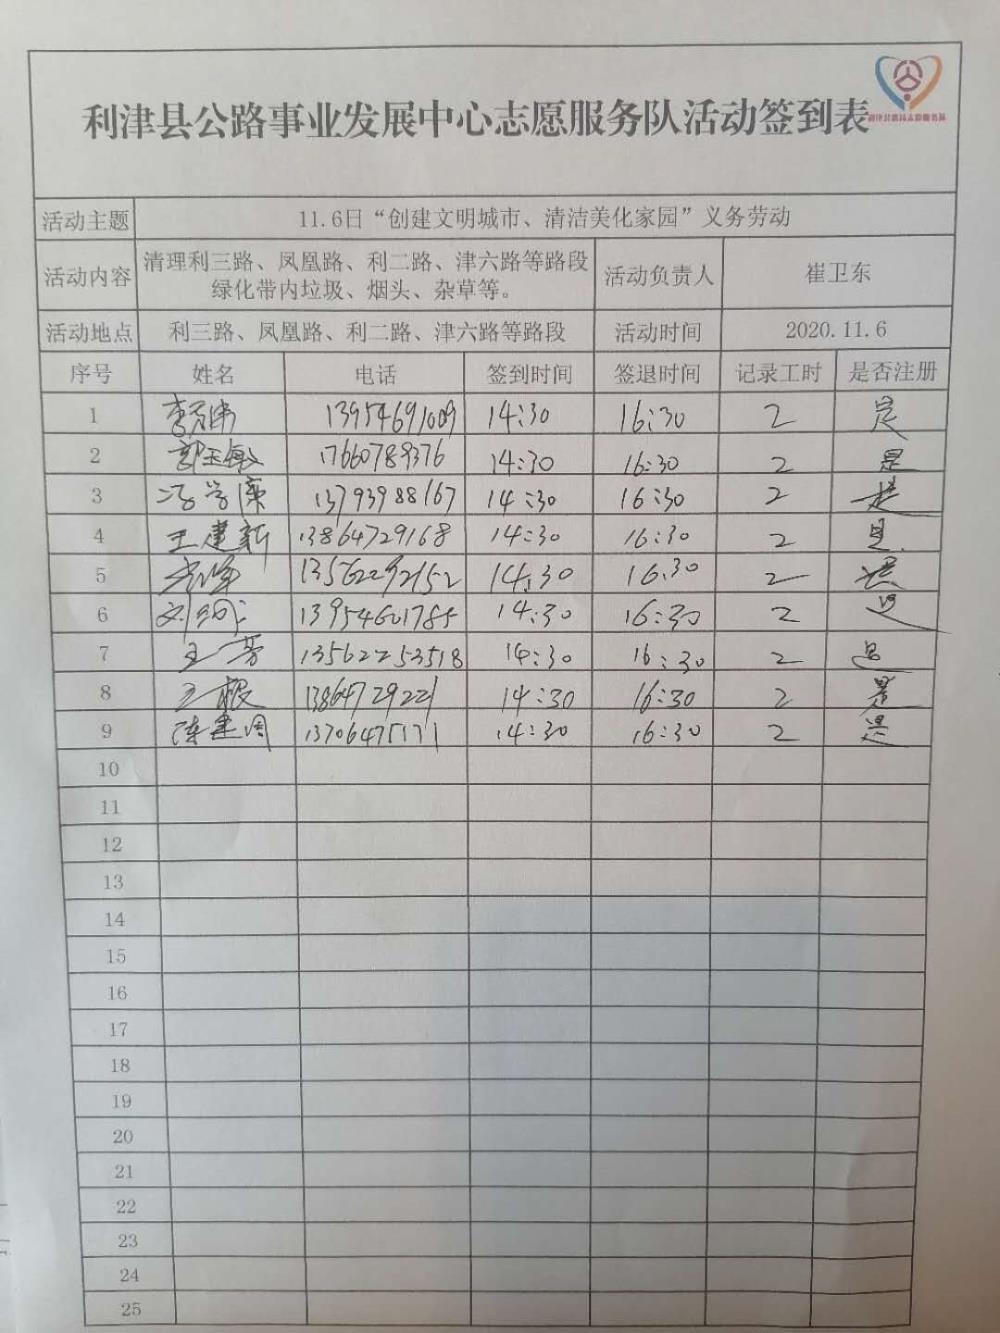 利津县公路事业发展中心志愿服务队活动签到表
活动主题 11.6日“创建文明城市、清洁美化家园”义务劳动
活动内容 清理利三路、凤凰路、利二路、津六路等路段绿化带内垃圾、烟头、杂草等。 活动负责人 崔卫东
活动地点 利三路、凤凰路、利二路、津六路等路段 活动时间 2020.11.6
序号 姓名 电话 签到时间 签退时间 记录工时 是否注册
1 13954691009 14:30 16:30 2 是
2 郭玉敏 17660789376 14:30 16:30 2 是
3 13793988167 14:30 16:30 2 是
4 王建新 13864729168 14:30 16:30 2 是
5 13562292152 14:30 16:30 2 是
6 13954601785 14:30 16:30 2 是
7 王芳 13562253518 14:30 16:30 2 是
8 13864729221 14:30 16:30 2 是
9 13706475171 14:30 16:30 2 是
10
11
12
13
14
15
16
17
18
19
20
21
22
23
24
25